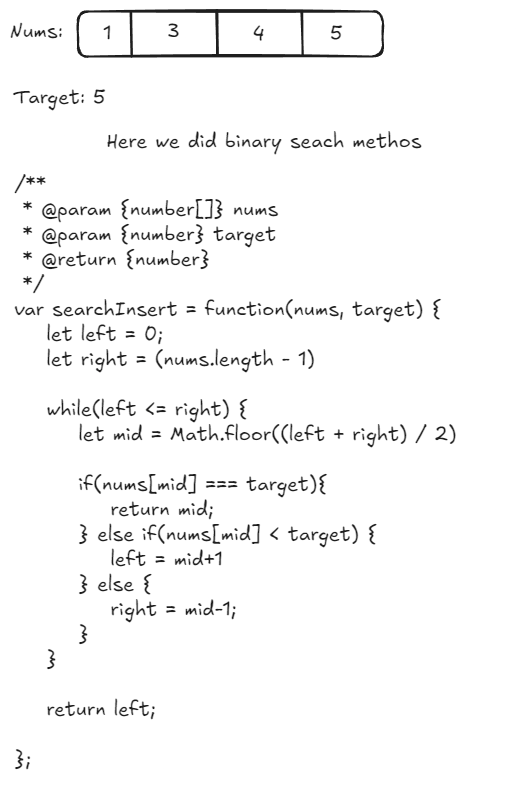 Nums: 1 3 4 5
Target: 5
Here we did binary seach methos
/**
 * @param {number[]} nums
 * @param {number} target
 * @return {number}
 */
var searchInsert = function(nums, target) {
    let left = 0;
    let right = (nums.length - 1)

    while(left <= right) {
        let mid = Math.floor((left + right) / 2)

        if(nums[mid] === target){
            return mid;
        } else if(nums[mid] < target) {
            left = mid+1
        } else {
            right = mid-1;
        }
    }

    return left;

};